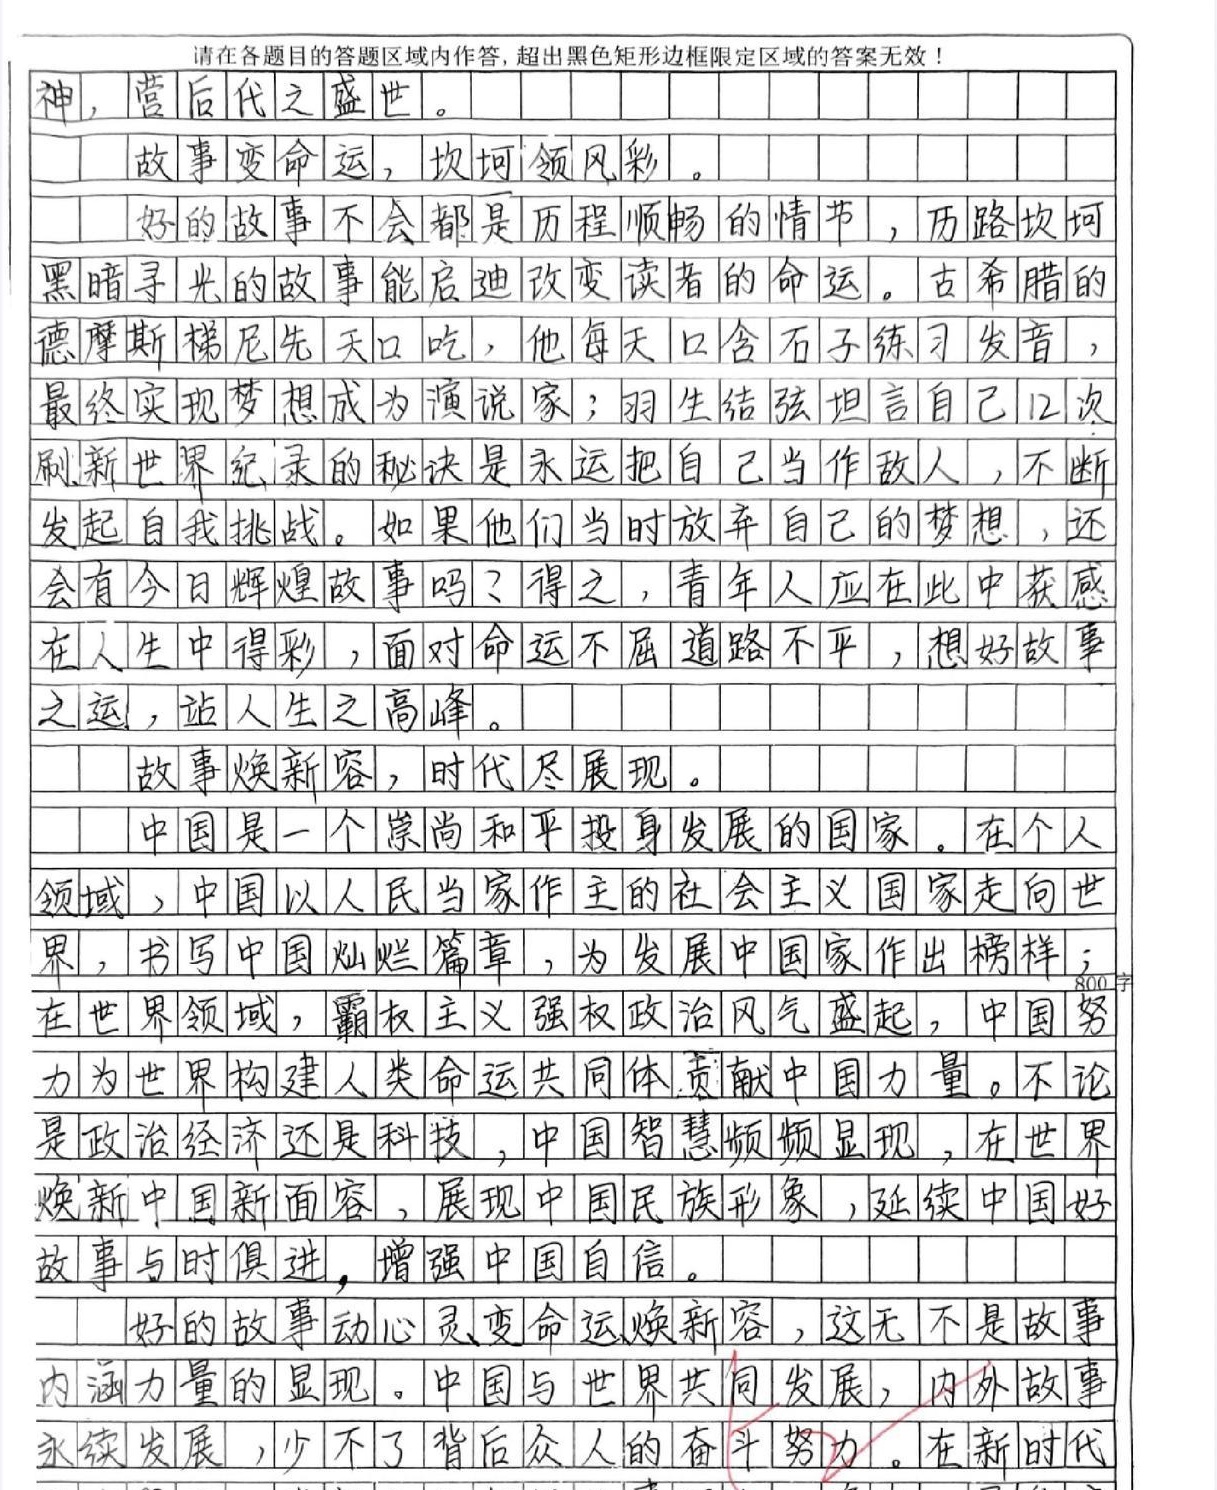 请在各题目的答题区域内作答，超出黑色矩形边框限定区域的答案无效！
神，营后代之盛世。
故事变命运，坎坷领风彩。
好的故事不会都是历程顺畅的情节，历路坎坷
黑暗寻光的故事能启迪改变读者的命运。古希腊的
德摩斯梯尼先天口吃，他每天口含石子练习发音，
最终实现梦想成为演说家；羽生结弦坦言自己12次
刷新世界纪录的秘诀是永远把自己当作敌人，不断
发起自我挑战。如果他们当时放弃自己的梦想，还
会有今日辉煌故事吗？得之，青年人应在此中获感
在人生中得彩，面对命运不屈道路不平，想好故事
之运，站人生之高峰。
故事焕新容，时代尽展现。
中国是一个崇尚和平投身发展的国家。在个人
领域，中国以人民当家作主的社会主义国家走向世
界，书写中国灿烂篇章，为发展中国家作出榜样；
800字
在世界领域，霸权主义强权政治风气盛起，中国努
力为世界构建人类命运共同体贡献中国力量。不论
是政治经济还是科技，中国智慧频频显现，在世界
焕新中国新面容，展现中国民族形象，延续中国好
故事与时俱进，增强中国自信。
好的故事动心灵、变命运、焕新容，这无不是故事
内涵力量的显现。中国与世界共同发展，内外故事
永续发展，少不了背后众人的奋斗努力。在新时代